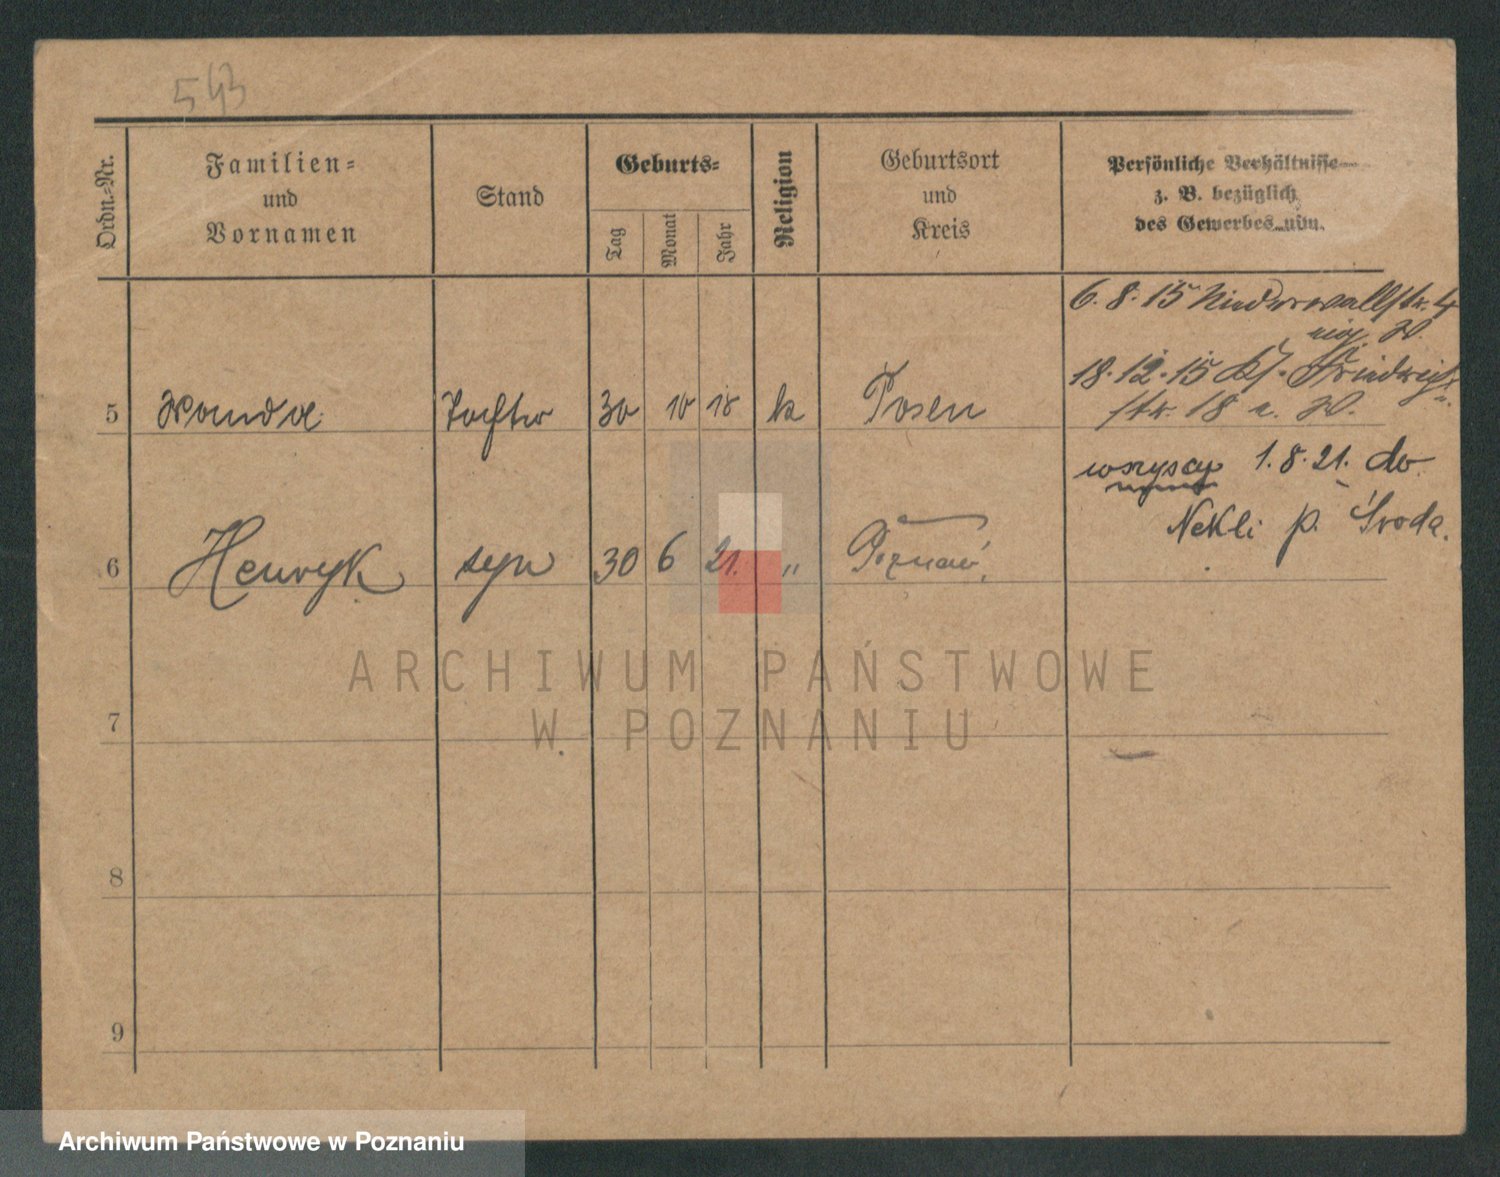 543
Ordn.-Nr.
Familien-
und
Vornamen
Stand
Geburts-
Tag
Monat
Jahr
Religion
Geburtsort
und
Kreis
Persönliche Verhältnisse
z. B. bezüglich
des Gewerbes usw.
6.8.15 Niederwallstr. 4
W.
18.12.15 Friedrich
str. 18 W.
5 Wanda Tochter 30 10 18 k Posen
wszyscy 1.8.21. do
Nekli p. Środa.
6 Henryk syn 30 6 21. " Poznań
7
8
9
ARCHIWUM PAŃSTWOWE
W POZNANIU
Archiwum Państwowe w Poznaniu